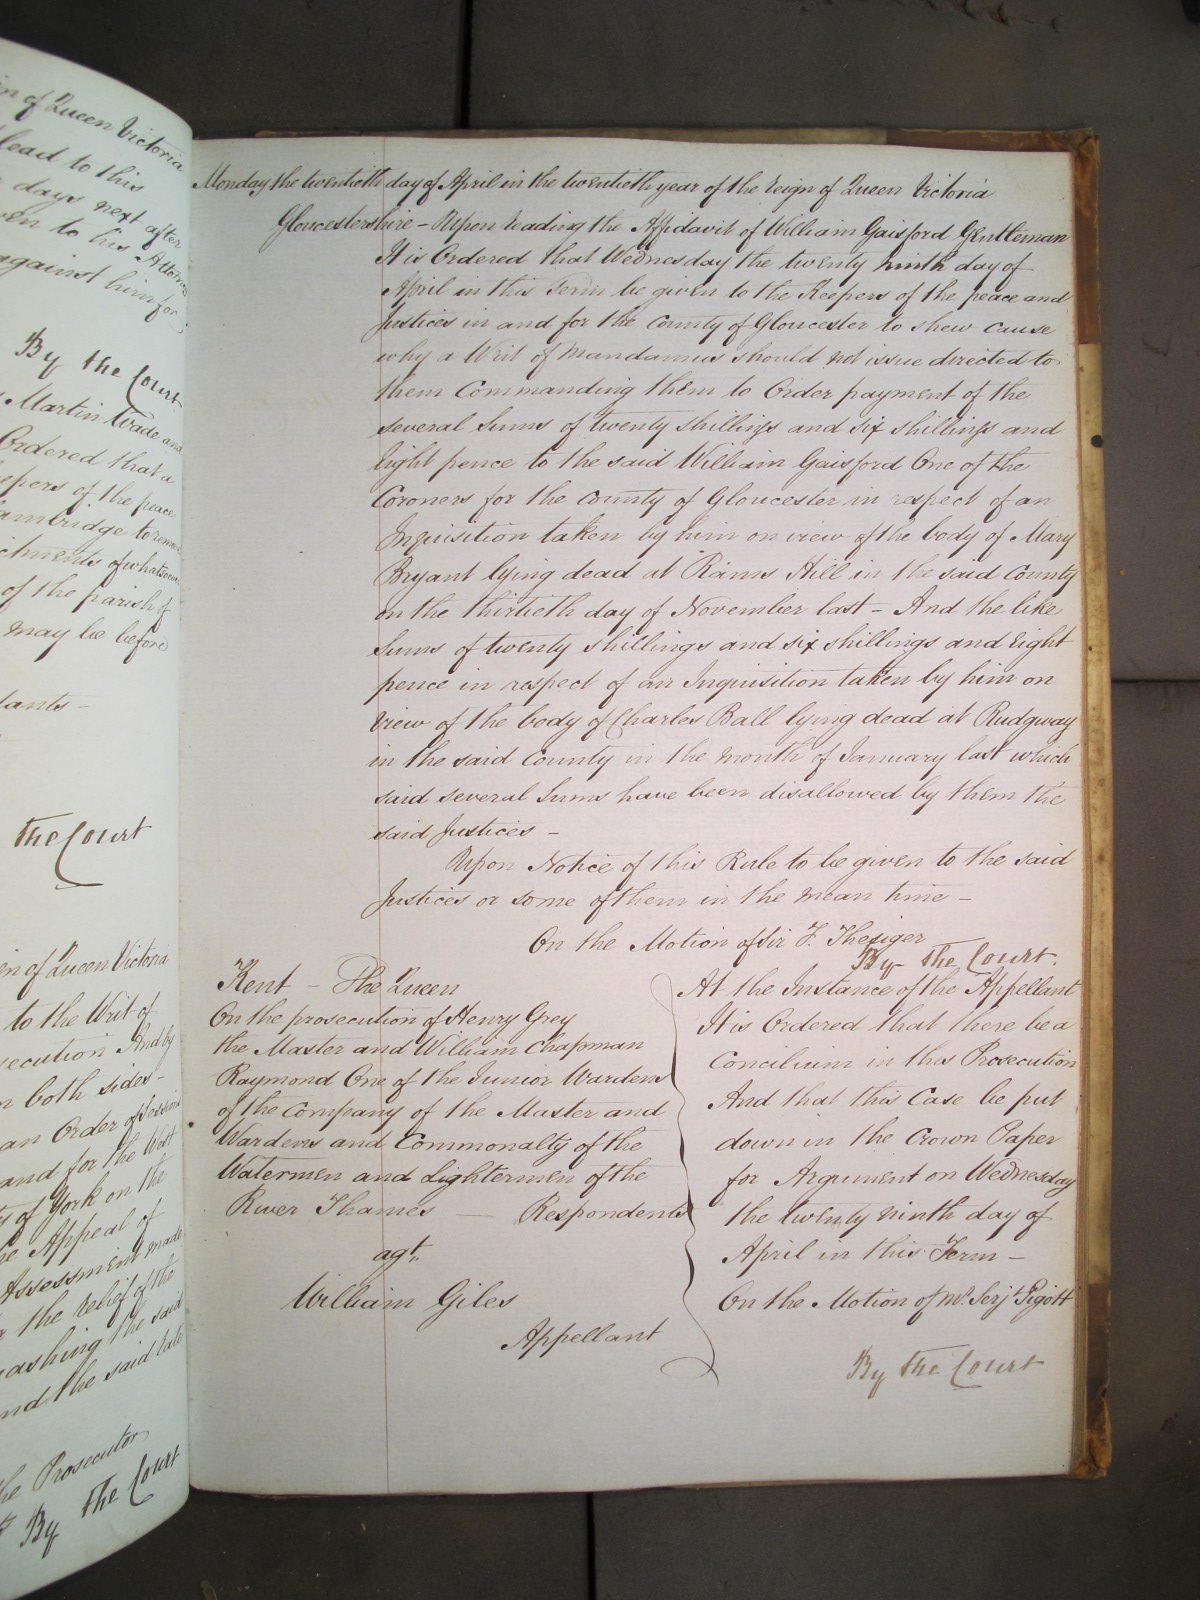 n of Queen Victoria
lead to this
days next after
ven to his Attorney
against him for
By the Court
Martin Wade and
Ordered that a
epers of the peace
ambridge to remove
ctments of whatsoever
of the parish of
may be before
dants -
The Court
en of Queen Victoria
to the Writ of
secution And by
n both sides -
an Order of Sessions
and for the West
of York on the
he Appeal of
Assessment made
r the relief of the
uashing the said
nd the said late
he Prosecutor
By the Court
Monday the twentieth day of April in the twentieth year of the reign of Queen Victoria
Gloucestershire - Upon reading the Affidavit of William Gaisford Gentleman
It is Ordered that Wednesday the twenty ninth day of
April in this Term be given to the Keepers of the peace and
Justices in and for the County of Gloucester to shew cause
why a Writ of Mandamus should not issue directed to
them Commanding them to Order payment of the
several Sums of twenty shillings and six shillings and
Eight pence to the said William Gaisford One of the
Coroners for the County of Gloucester in respect of an
Inquisition taken by him on view of the body of Mary
Bryant lying dead at Rams Hill in the said County
on the thirtieth day of November last - And the like
Sums of twenty shillings and six shillings and Eight
pence in respect of an Inquisition taken by him on
view of the body of Charles Ball lying dead at Rudgway
in the said County in the month of January last which
said several Sums have been disallowed by them the
said Justices -
Upon Notice of this Rule to be given to the said
Justices or some of them in the mean time -
On the Motion of Sir F. Thesiger
By the Court.
Kent - The Queen
On the prosecution of Henry Grey
the Master and William Chapman
Raymond One of the Junior Wardens
of the Company of the Master and
Wardens and Commonalty of the
Watermen and Lightermen of the
River Thames - Respondents
agt.
William Giles
Appellant
At the Instance of the Appellant
It is Ordered that there be a
Concilium in this Prosecution
And that this Case be put
down in the Crown Paper
for Argument on Wednesday
the twenty ninth day of
April in this Term -
On the Motion of Mr. Serjt. Pigott
By the Court